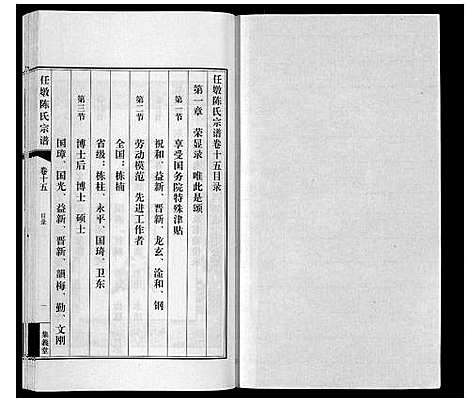 任墩陈氏宗谱卷十五目录
第一章 荣显录 唯此是颂
第一节 享受国务院特殊津贴
祝和、益新、晋新、龙玄、淦和、钢
第二节 劳动模范 先进工作者
全国：栋楠
省级：栋柱、永平、国琦、卫东
第三节 博士后 博士 硕士
国璋、国光、益新、晋新、韻梅、勤、文刚
任墩陈氏宗谱
卷十五
目录
一
集义堂